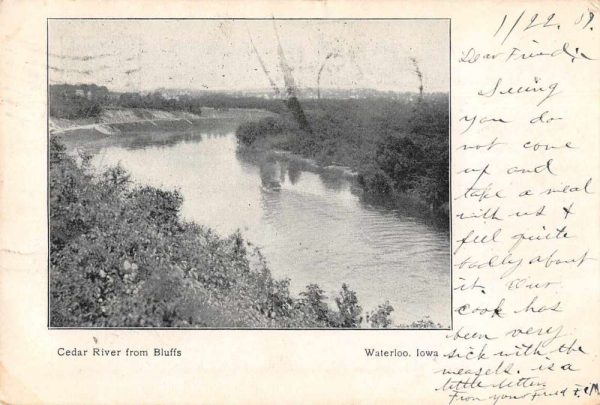 1/22. 09.
Dear Friend;
Seeing
you do
not come
up and
take a meal
with us &
feel quite
badly about
it. Our
cook has
been very
sick with the
measels. is a
little better
From your Friend
Cedar River from Bluffs
Waterloo, Iowa